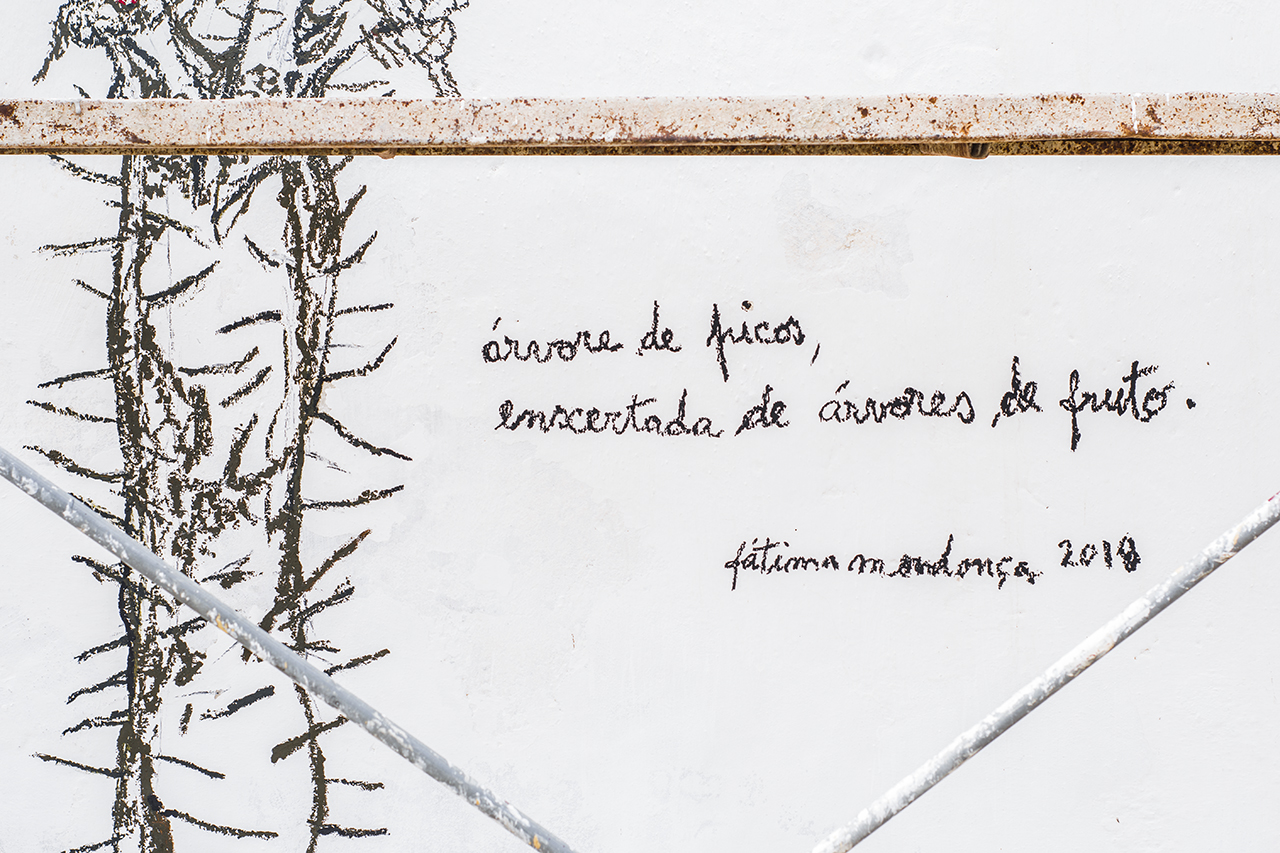 árvore de picos,
enxertada de árvores de fruto.
fátima mendonça 2018